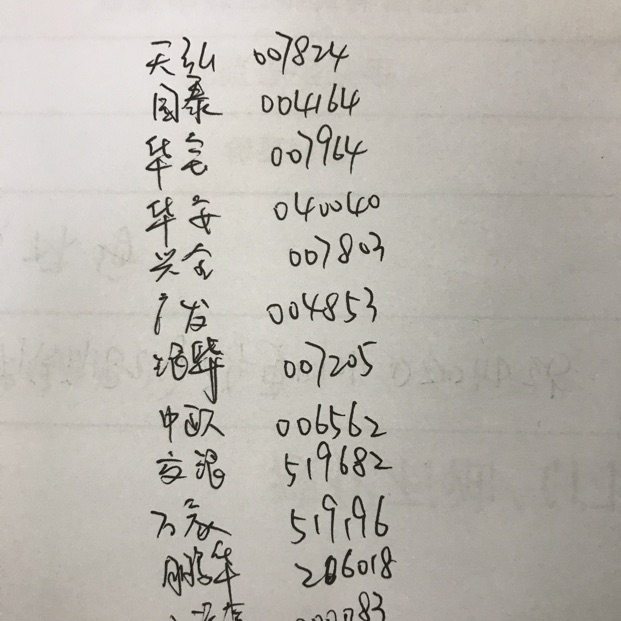 天弘 007824
国泰 004164
华宝 007964
华安 040040
兴全 007803
广发 004853
银华 007205
中欧 006562
交银 519682
万家 519196
鹏华 206018